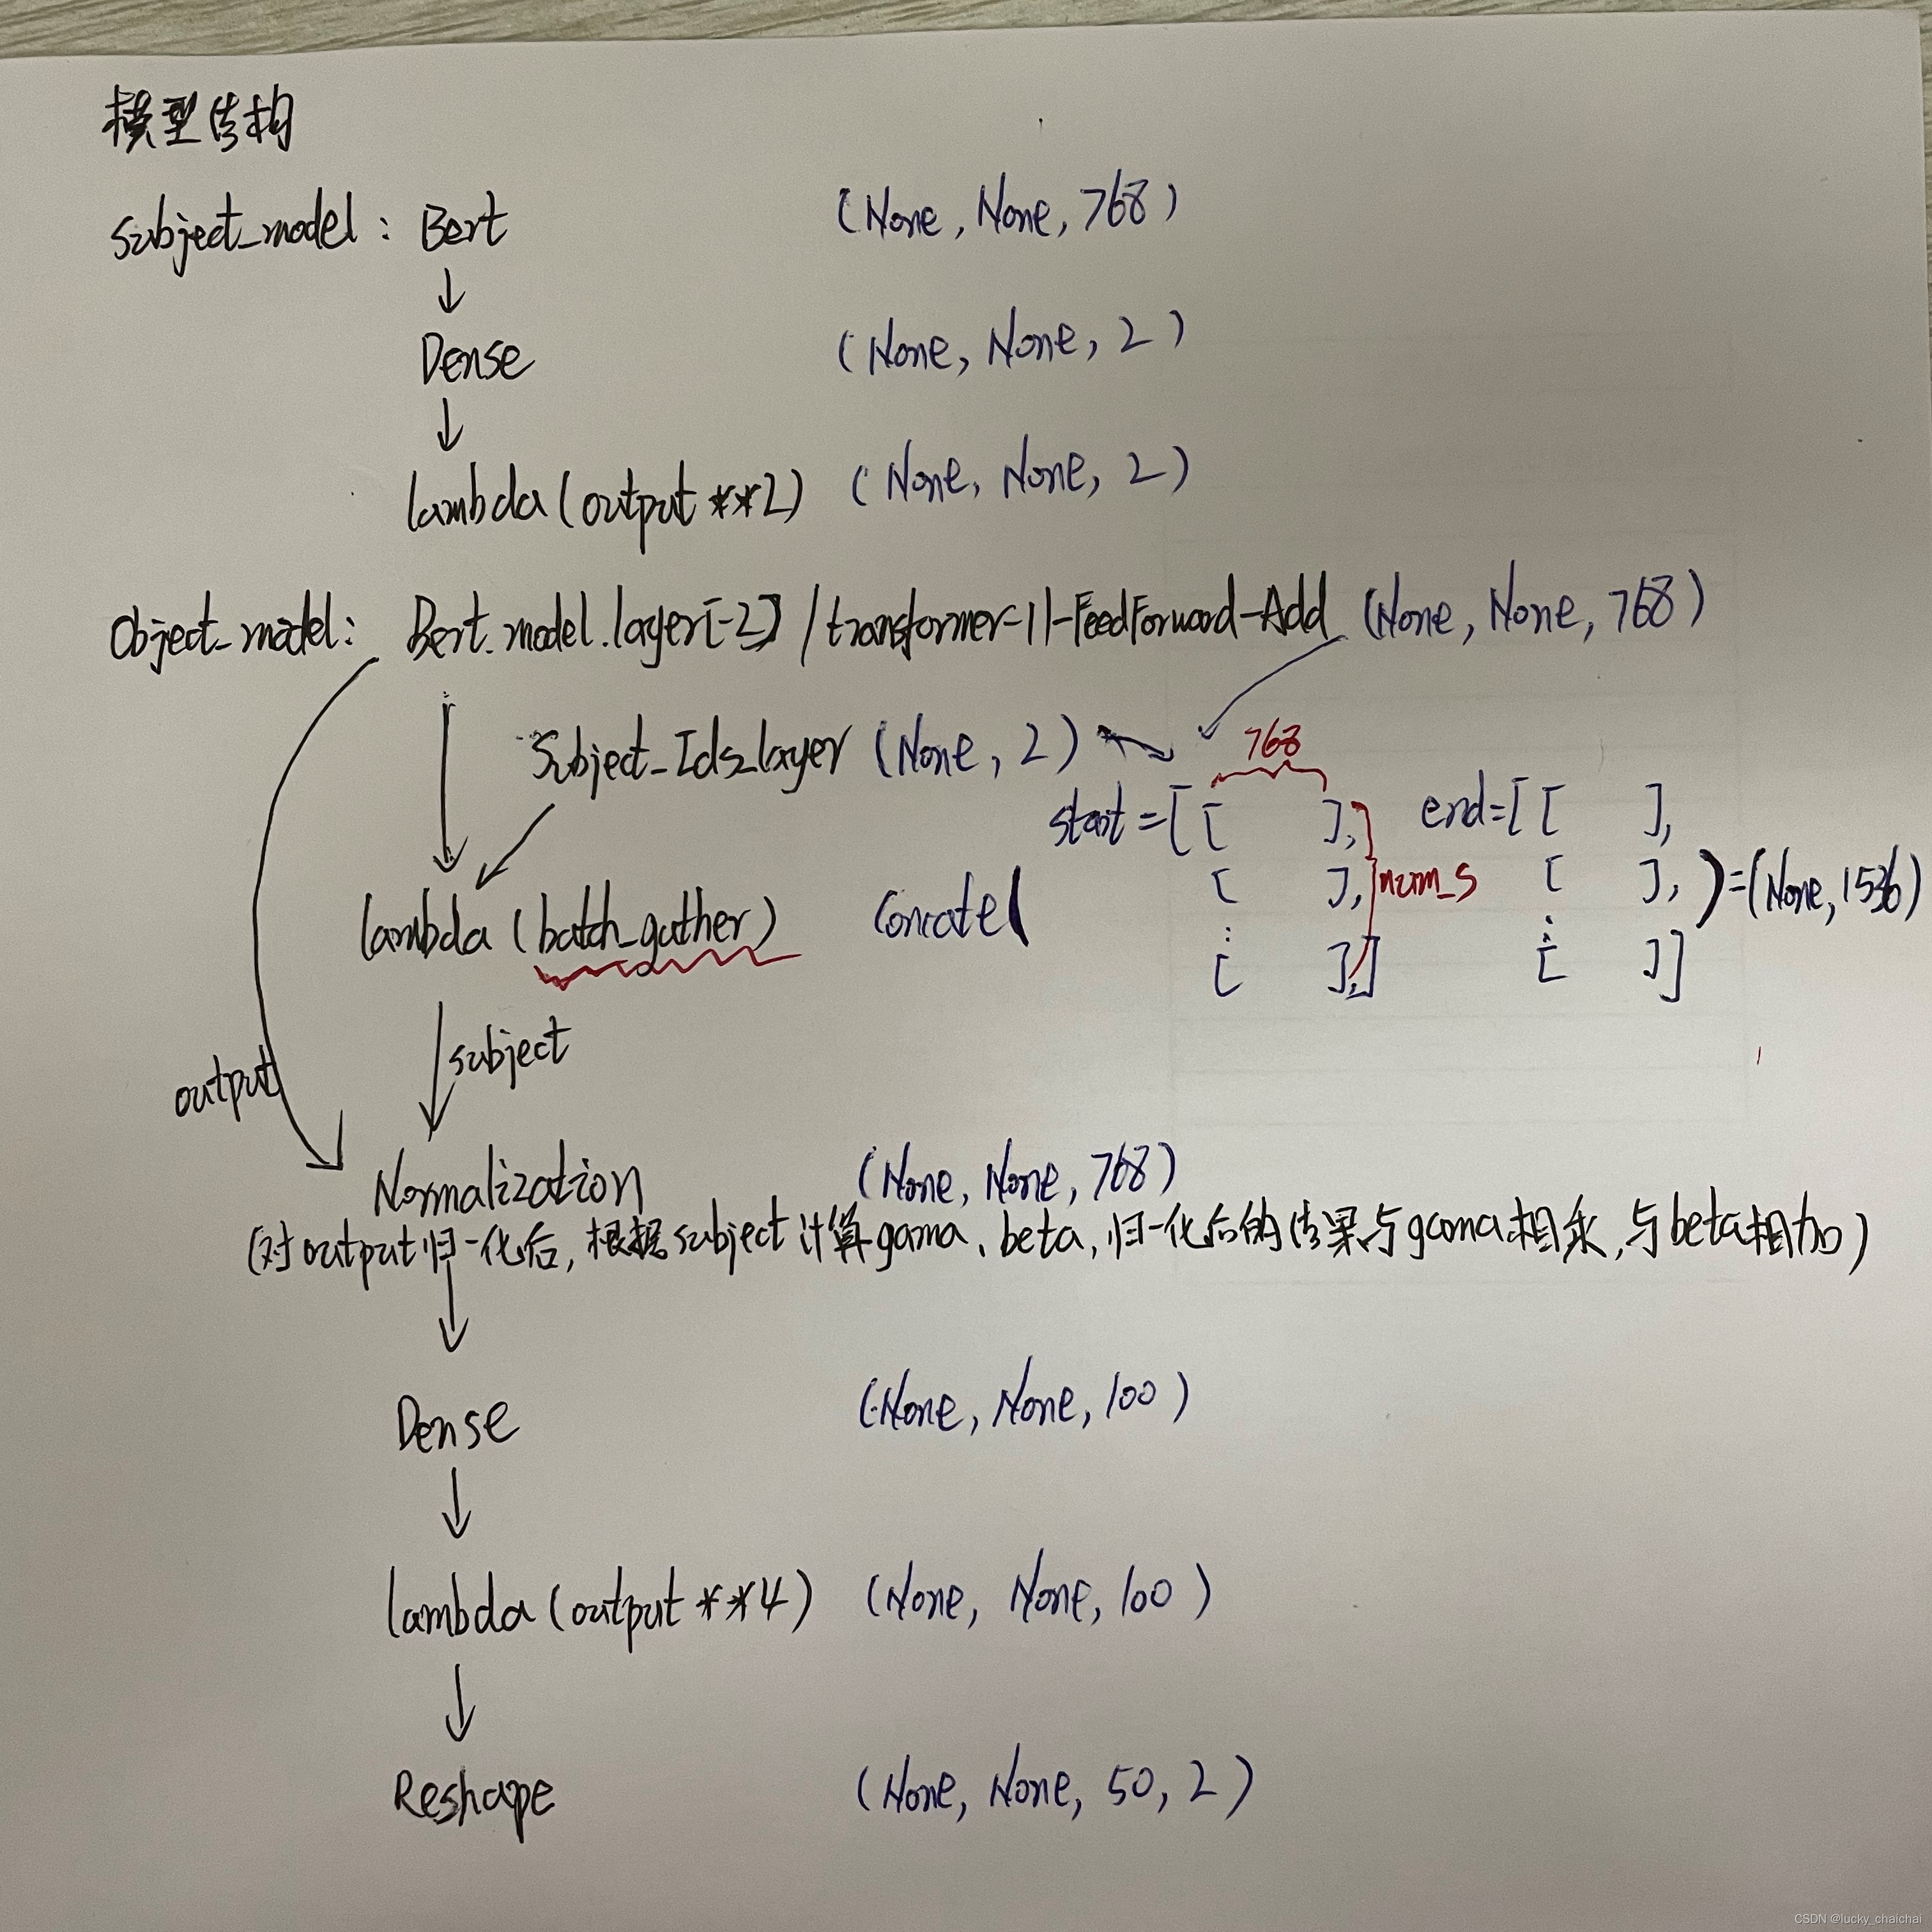 模型结构
subject_model: Bert (None, None, 768)
Dense (None, None, 2)
lambda(output**2) (None, None, 2)
Object_model: Bert.model.layer[-2] / transformer-11-FeedForward-Add (None, None, 768)
Subject_Ids_layer (None, 2)
768
start=[[ ], end=[[ ],
[ ], num_s [ ], )=(None,1536)
lambda (batch_gather) Concate(
⋮ ⋮
[ ],] [ ]]
subject
output
Normalization (None, None, 768)
(对output归一化后,根据subject计算gama、beta,归一化后的结果与gama相乘,与beta相加)
Dense (None, None, 100)
lambda(output**4) (None, None, 100)
Reshape (None, None, 50, 2)
CSDN @lucky_chaichai